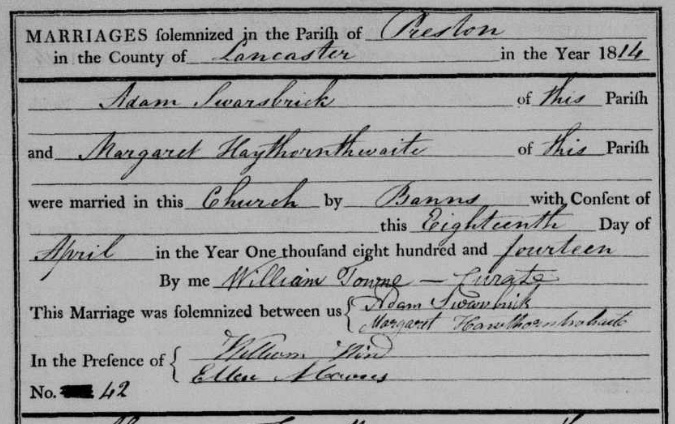 MARRIAGES ſolemnized in the Pariſh of Preston
in the County of Lancaster in the Year 1814
Adam Swarsbrick of this Pariſh
and Margaret Haythornthwaite of this Pariſh
were married in this Church by Banns with Conſent of
this Eighteenth Day of
April in the Year One thouſand eight hundred and fourteen
By me William Towne — Curate
This Marriage was ſolemnized between us { Adam
Margaret
In the Preſence of { William
Ellen
No. 42